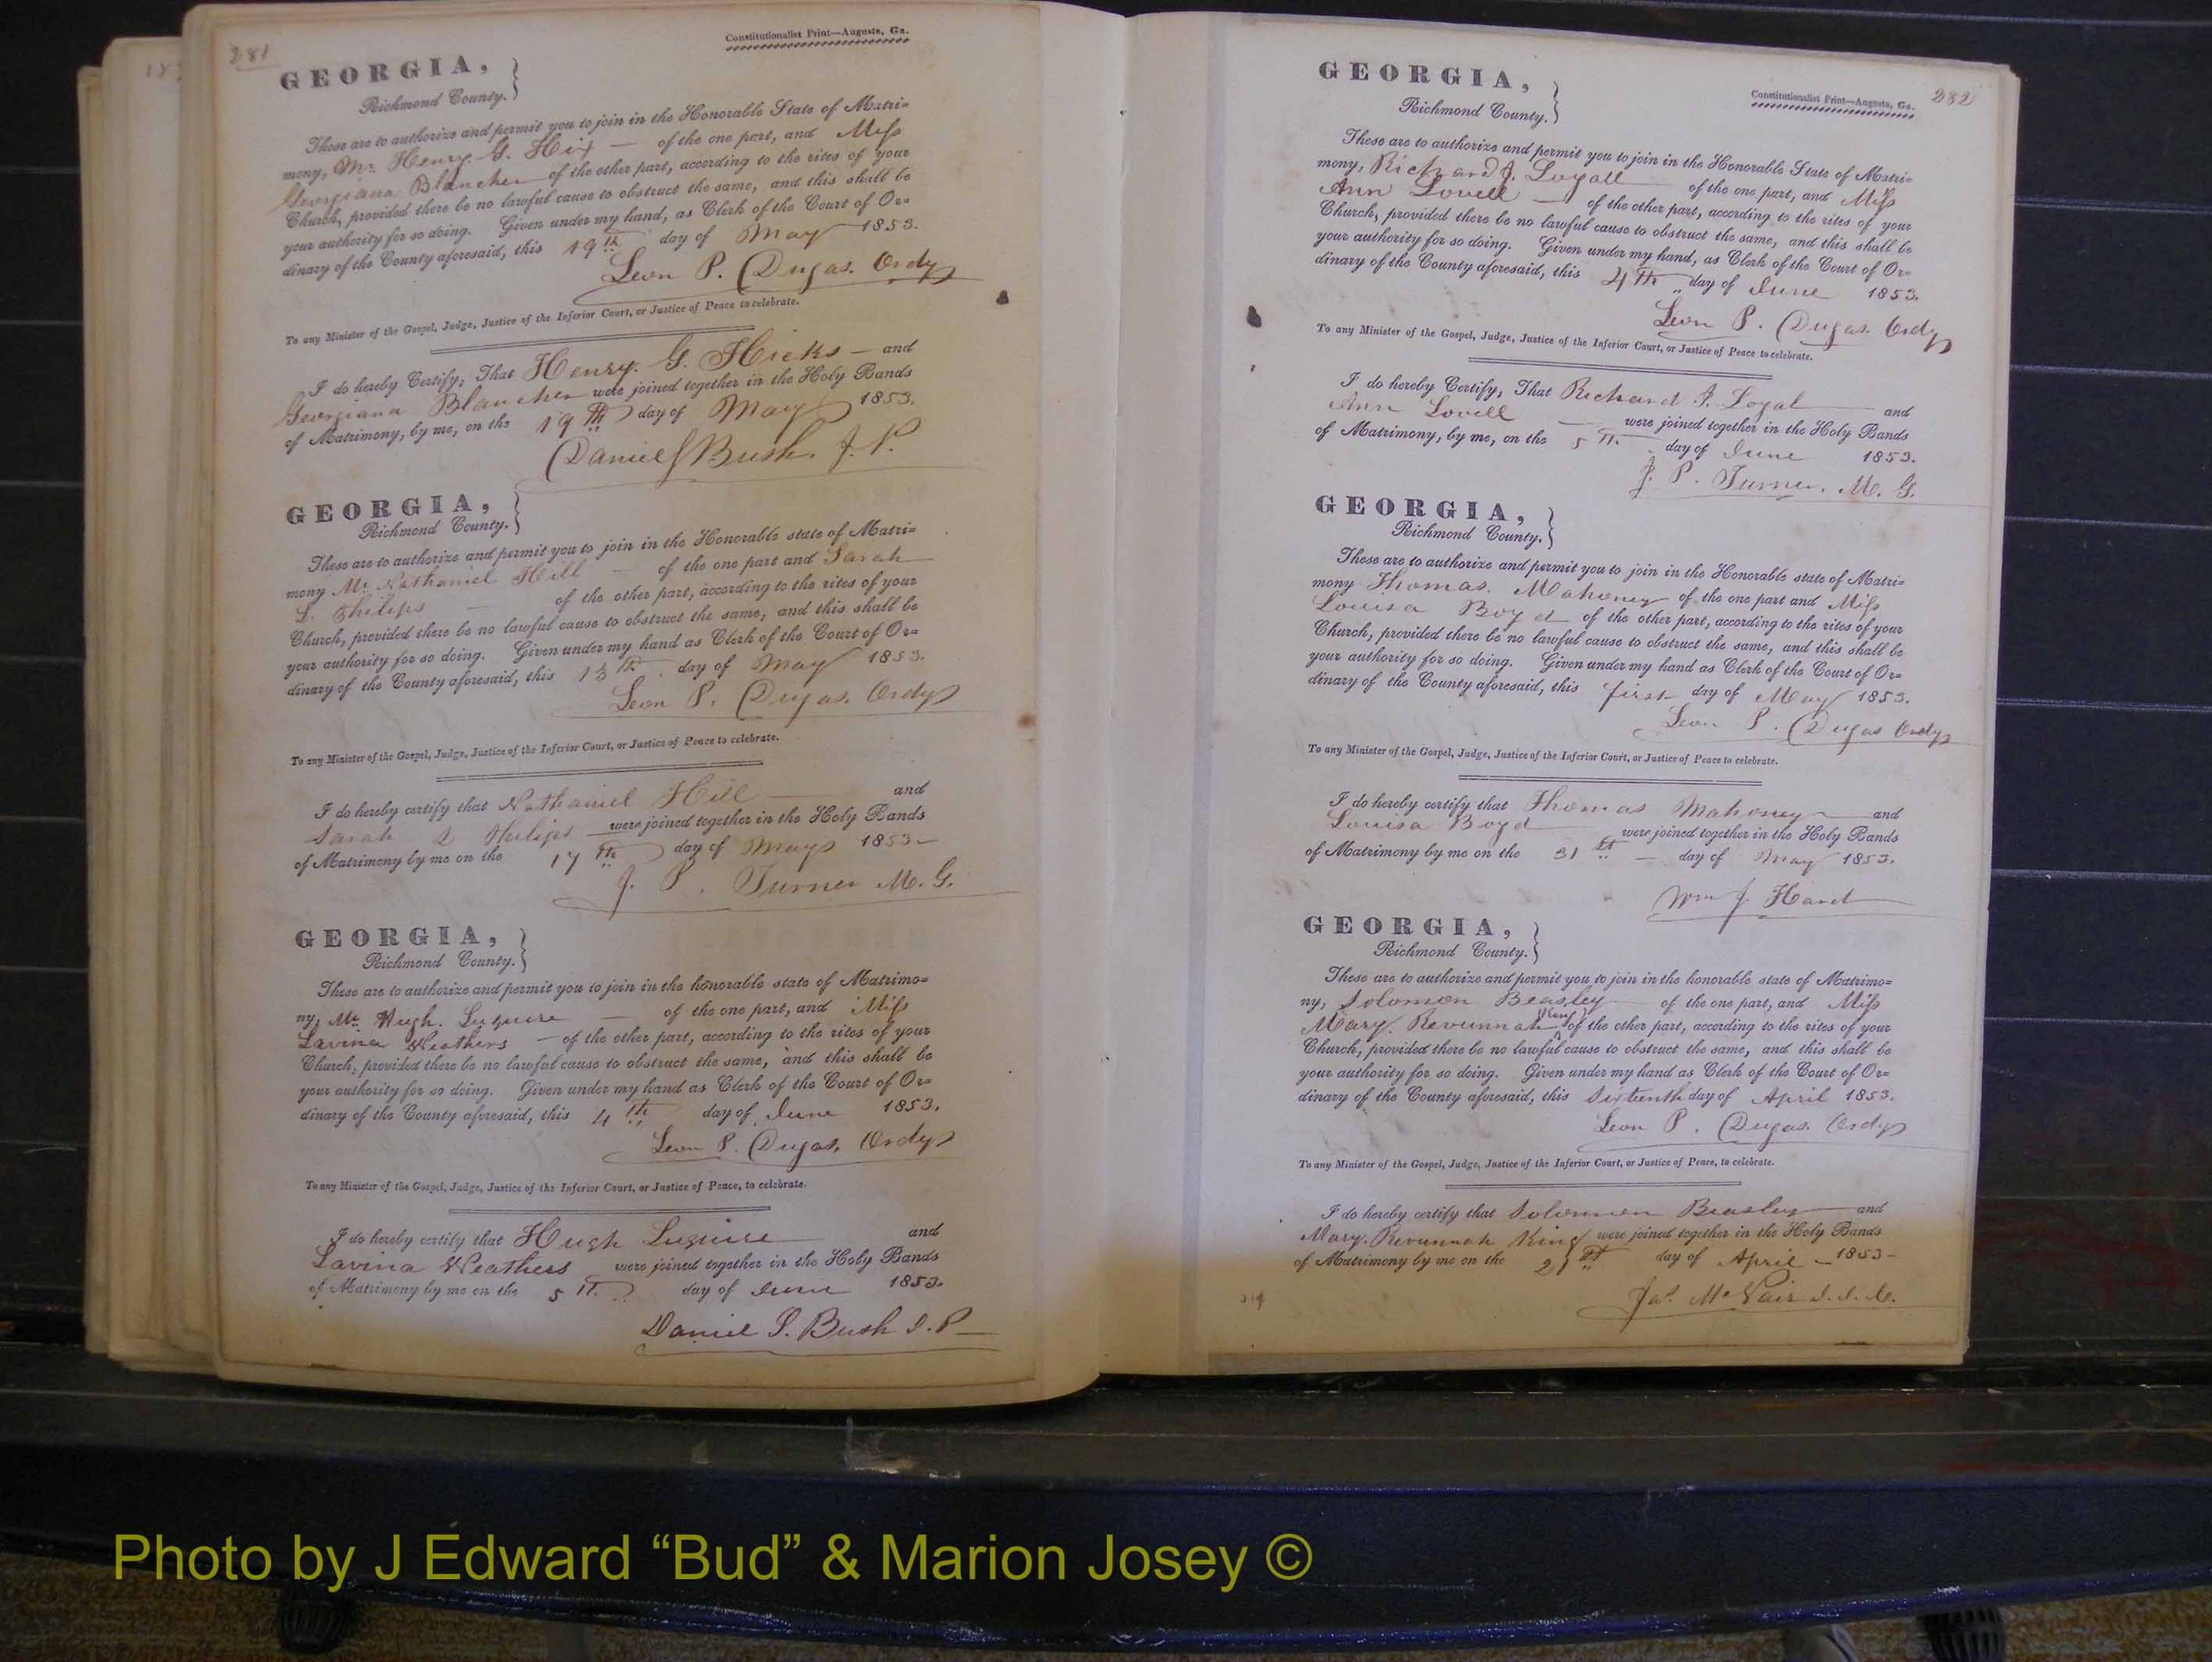 281
Constitutionalist Print—Augusta, Ga.
GEORGIA,
Richmond County.
These are to authorize and permit you to join in the Honorable State of Matri=
mony, Mr. Henry G. Hix — of the one part, and Miss
Georgiana Blancher of the other part, according to the rites of your
Church, provided there be no lawful cause to obstruct the same, and this shall be
your authority for so doing. Given under my hand, as Clerk of the Court of Or=
dinary of the County aforesaid, this 19th day of May 1853.
Leon P. Dugas. Ordy
To any Minister of the Gospel, Judge, Justice of the Inferior Court, or Justice of Peace to celebrate.
I do hereby Certify, That Henry. G. Hicks — and
Georgiana Blancher were joined together in the Holy Bands
of Matrimony, by me, on the 19th day of May 1853.
Daniel S Bush. J. P.
GEORGIA,
Richmond County.
These are to authorize and permit you to join in the Honorable state of Matri=
mony Mr. Nathaniel Hill — of the one part and Sarah
L. Philips — of the other part, according to the rites of your
Church, provided there be no lawful cause to obstruct the same, and this shall be
your authority for so doing. Given under my hand as Clerk of the Court of Or=
dinary of the County aforesaid, this 13th day of May 1853.
Leon P. Dugas. Ordy
To any Minister of the Gospel, Judge, Justice of the Inferior Court, or Justice of Peace to celebrate.
I do hereby certify that Nathaniel Hill — and
Sarah L Philips were joined together in the Holy Bands
of Matrimony by me on the 17th day of May 1853—
J. P. Turner M. G.
GEORGIA,
Richmond County.
These are to authorize and permit you to join in the honorable state of Matrimo=
ny, Mr. Hugh. Luquire — of the one part, and Miss
Lavina Weathers — of the other part, according to the rites of your
Church, provided there be no lawful cause to obstruct the same, and this shall be
your authority for so doing. Given under my hand as Clerk of the Court of Or=
dinary of the County aforesaid, this 4th day of June 1853.
Leon P. Dugas, Ordy
To any Minister of the Gospel, Judge, Justice of the Inferior Court, or Justice of Peace, to celebrate.
I do hereby certify that Hugh Luquire and
Lavina Weathers were joined together in the Holy Bands
of Matrimony by me on the 5th day of June 1853.
Daniel S. Bush J. P—
Constitutionalist Print—Augusta, Ga.
282
GEORGIA,
Richmond County.
These are to authorize and permit you to join in the Honorable State of Matri=
mony, Richard J. Loyall of the one part, and Miss
Ann Lovell — of the other part, according to the rites of your
Church, provided there be no lawful cause to obstruct the same, and this shall be
your authority for so doing. Given under my hand, as Clerk of the Court of Or=
dinary of the County aforesaid, this 4th day of June 1853.
Leon P. Dugas. Ordy
To any Minister of the Gospel, Judge, Justice of the Inferior Court, or Justice of Peace to celebrate.
I do hereby Certify, That Richard J. Loyal and
Ann Lovell — were joined together in the Holy Bands
of Matrimony, by me, on the 5th day of June 1853.
J. P. Turner. M. G.
GEORGIA,
Richmond County.
These are to authorize and permit you to join in the Honorable state of Matri=
mony Thomas. Mahoney of the one part and Miss
Louisa Boyd of the other part, according to the rites of your
Church, provided there be no lawful cause to obstruct the same, and this shall be
your authority for so doing. Given under my hand as Clerk of the Court of Or=
dinary of the County aforesaid, this first day of May 1853.
Leon P. Dugas Ordy
To any Minister of the Gospel, Judge, Justice of the Inferior Court, or Justice of Peace to celebrate.
I do hereby certify that Thomas Mahoney and
Louisa Boyd were joined together in the Holy Bands
of Matrimony by me on the 31st — day of May 1853.
Wm J. Hard
GEORGIA,
Richmond County.
These are to authorize and permit you to join in the honorable state of Matrimo=
ny, Solomon Beasley of the one part, and Miss
Mary. Revunnah King of the other part, according to the rites of your
Church, provided there be no lawful cause to obstruct the same, and this shall be
your authority for so doing. Given under my hand as Clerk of the Court of Or=
dinary of the County aforesaid, this Sixteenth day of April 1853.
Leon P. Dugas. Ordy
To any Minister of the Gospel, Judge, Justice of the Inferior Court, or Justice of Peace, to celebrate.
I do hereby certify that Solomon Beasley and
Mary. Revunnah King were joined together in the Holy Bands
of Matrimony by me on the 21st day of April — 1853—
Jas. McNair J. I. C.
Photo by J Edward “Bud” & Marion Josey ©